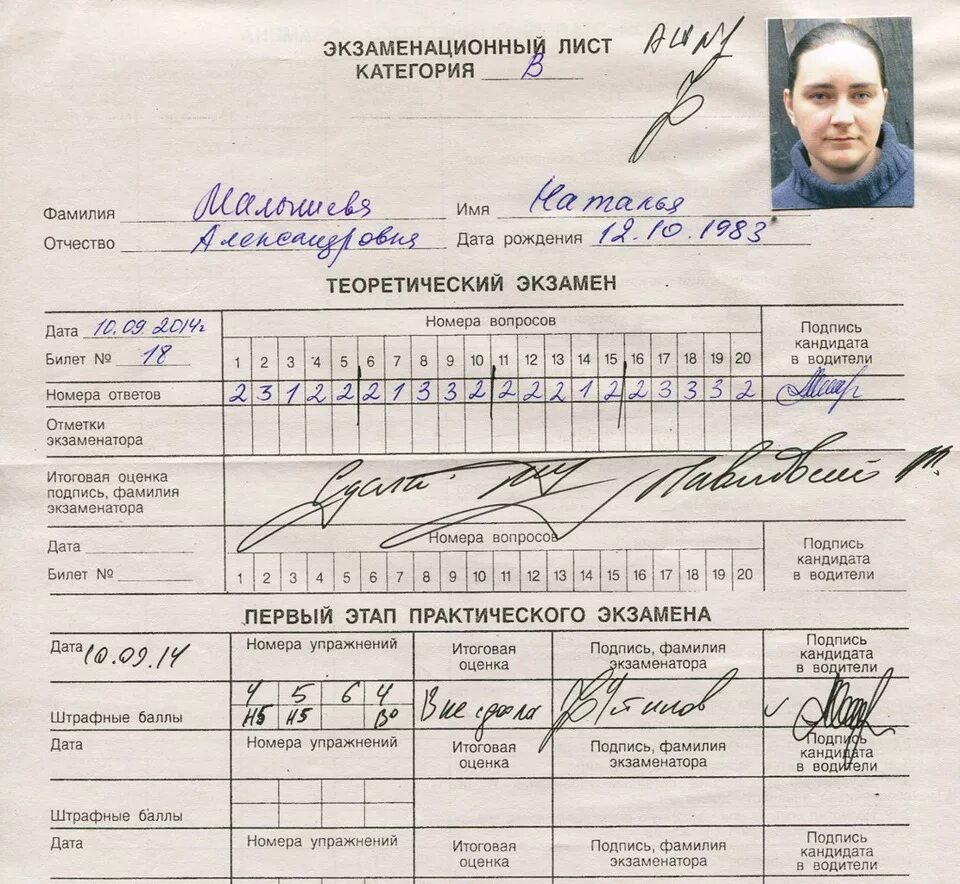 ЭКЗАМЕНАЦИОННЫЙ ЛИСТ
КАТЕГОРИЯ В
Фамилия Малышева Имя Наталья
Отчество Александровна Дата рождения 12.10.1983
ТЕОРЕТИЧЕСКИЙ ЭКЗАМЕН
Дата 10.09.2014г
Билет № 18
Номера вопросов
1 2 3 4 5 6 7 8 9 10 11 12 13 14 15 16 17 18 19 20
Подпись кандидата в водители
Номера ответов 2 3 1 2 2 2 1 3 3 2 2 2 2 1 2 2 3 3 3 2
Отметки экзаменатора
Итоговая оценка подпись, фамилия экзаменатора Сдала
Дата
Билет №
Номера вопросов
1 2 3 4 5 6 7 8 9 10 11 12 13 14 15 16 17 18 19 20
Подпись кандидата в водители
ПЕРВЫЙ ЭТАП ПРАКТИЧЕСКОГО ЭКЗАМЕНА
Дата 10.09.14 Номера упражнений Итоговая оценка Подпись, фамилия экзаменатора Подпись кандидата в водители
4 5 6 4
Штрафные баллы Н5 Н5 не сдала
Дата Номера упражнений Итоговая оценка Подпись, фамилия экзаменатора Подпись кандидата в водители
Штрафные баллы
Дата Номера упражнений Итоговая оценка Подпись, фамилия экзаменатора Подпись кандидата в водители